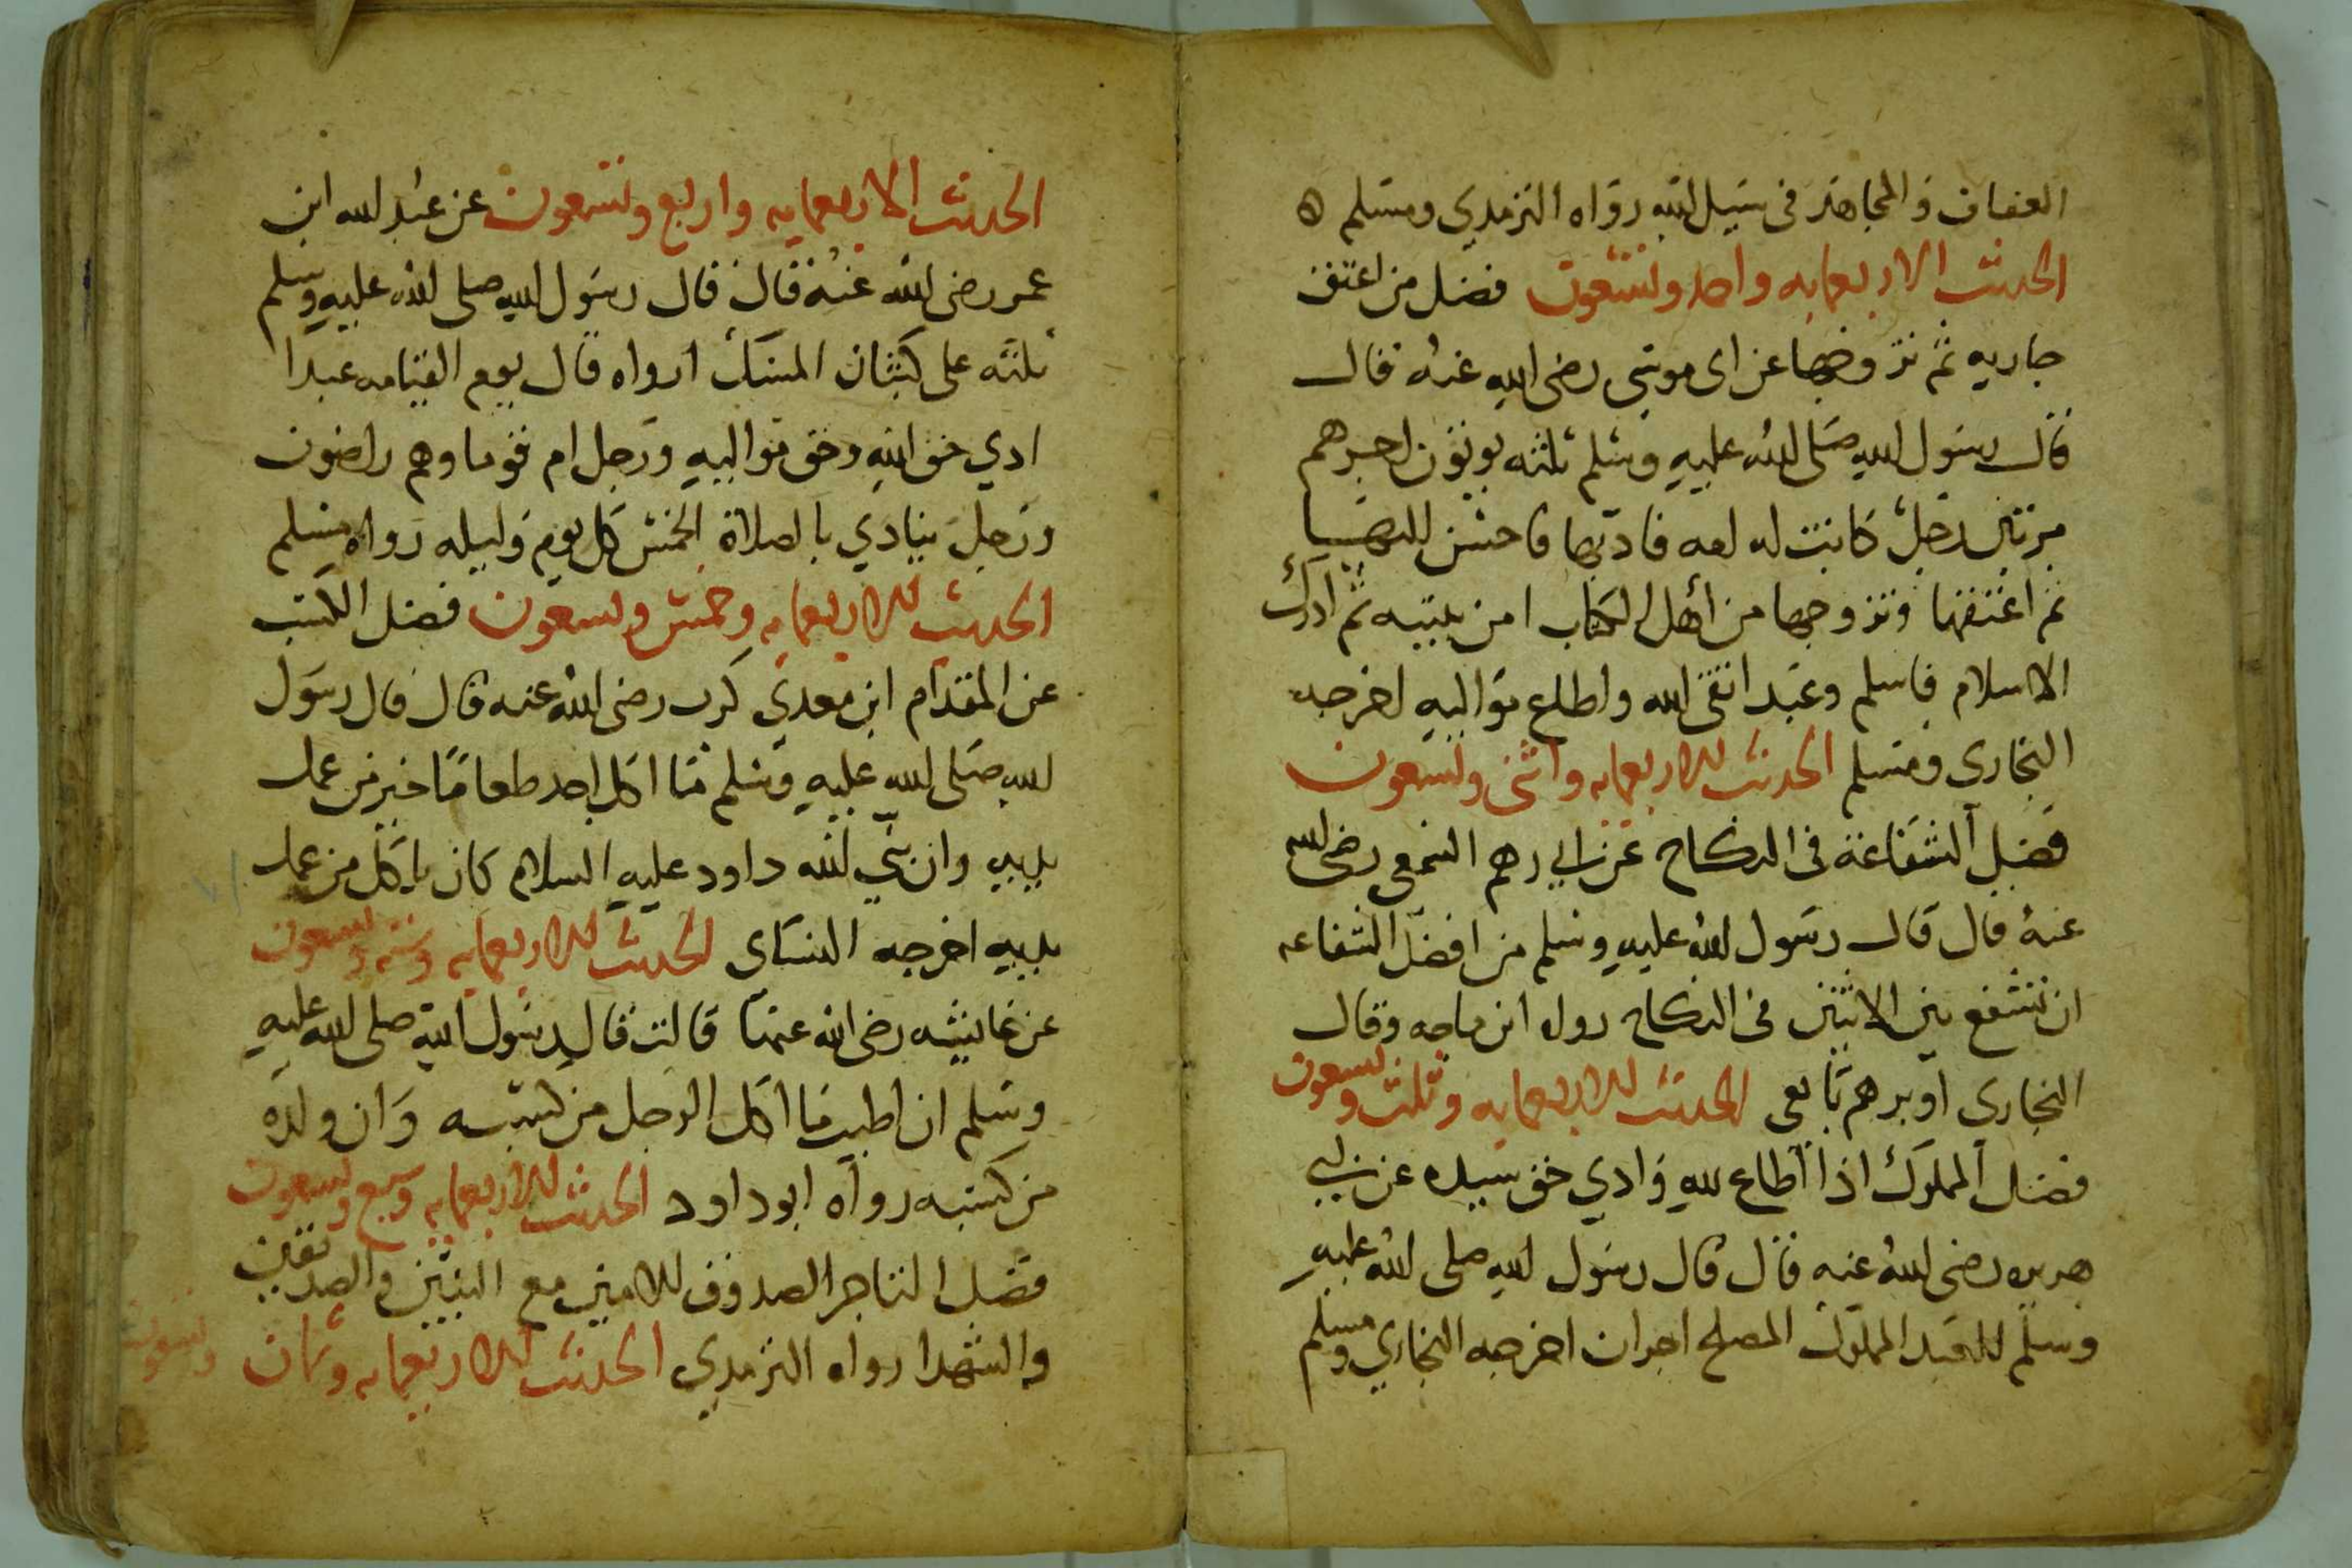 العفاف والمجاهد فى سبيل الله رواه الترمدي ومسلم ه
الحديث الاربعمايه واحد وتسعون فضل من اعتق
جاريه ثم تزوجها عن اى موسى رضى الله عنه قال
قال رسول الله صلى الله عليه وسلم ثلثه يوتون اجرهم
مرتين رجل كانت له امه فادبها فاحسن
ثم اعتقها وتزوجها من أهل الكتاب امن بنبيه ثم ادرك
الاسلام فاسلم وعبد اتقى الله واطاع مواليه اخرجه
البخارى ومسلم الحديث الاربعمايه واثنى وتسعون
فضل الشفاعة فى النكاح عن ابي رهم السمعى رضى الله
عنه قال قال رسول الله عليه وسلم من افضل الشفاعه
ان تشفع بين الاثنين فى النكاح رواه ابن ماجه وقال
البخارى ابو برهم تابعى الحديث الاربعمايه وثلث وتسعون
فضل المملوك اذا أطاع لله وادي حق سيده عن ابي
هريره رضى الله عنه قال قال رسول الله صلى الله عليه
وسلم للعبد المملوك المصلح اجران اخرجه البخاري ومسلم
الحديث الاربعمايه واربع وتسعون عن عبد الله ابن
عمر رضى الله عنه قال قال رسول الله صلى الله عليه وسلم
ثلثه على كثبان المسك ارواه قال يوم القيامه عبدا
ادي حق الله وحق مواليه ورجل ام قوما وهم راضون
ورجل ينادي بالصلاة الخمس كل يوم وليله رواه مسلم
الحديث الاربعمايه وخمس وتسعون فضل الكسب
عن المقدام ابن معدي كرب رضى الله عنه قال قال رسول
الله صلى الله عليه وسلم ما اكل احد طعاما خير من عمل
يديه وان نبي الله داود عليه السلام كان ياكل من عمل
يديه اخرجه النساى الحديث الاربعمايه وسته وتسعون
عن عايشه رضى الله عنها قالت قال رسول الله صلى الله عليه
وسلم ان اطيب ما اكل الرجل من كسبه وان ولده
من كسبه رواه ابو داود الحديث الاربعمايه وسبع وتسعون
فضل التاجر الصدوق الامين مع النبين والصديقين
والشهدا رواه الترمدي الحديث الاربعمايه وثمان وتسعون